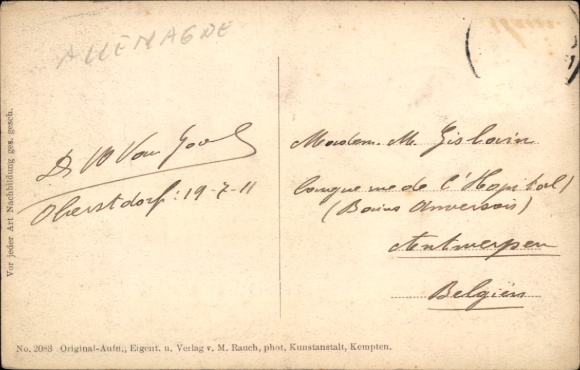 ALLEMAGNE
Vor jeder Art Nachbildung ges. gesch.
Dr W Van Goo
Oberstdorf: 19-7-11
Madam. M. Gislavin
Longue rue de l'Hopital
(Bains Anversois)
Antwerpen
Belgien
No. 2083 Original-Aufn., Eigent. u. Verlag v. M. Rauch, phot. Kunstanstalt, Kempten.